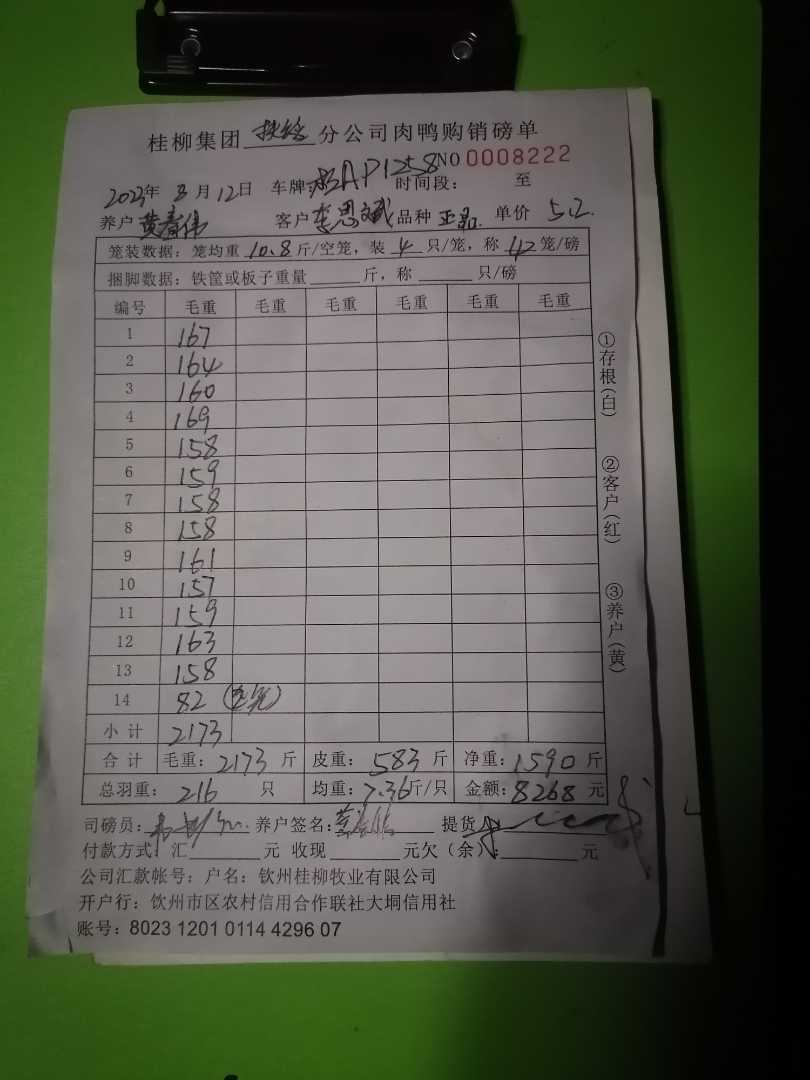 桂柳集团 分公司肉鸭购销磅单
NO 0008222
2023年 8月12日 车牌: AP1258 时间段: 至
养户 黄春伟 客户 李思斌 品种 单价 5.2
笼装数据: 笼均重 10.8 斤/空笼, 装 4 只/笼, 称 笼/磅
捆脚数据: 铁筐或板子重量 斤, 称 只/磅
编号 毛重 毛重 毛重 毛重 毛重 毛重
1 167
2 164
3 160
4 169
5 158
6 159
7 158
8 158
9 161
10 157
11 159
12 163
13 158
14 82
小计 2173
合计 毛重: 2173 斤 皮重: 583 斤 净重: 1590 斤
总羽重: 216 只 均重: 7.36 斤/只 金额: 8268 元
司磅员: 养户签名: 提货人:
付款方式: 汇 元 收现 元欠(余): 元
公司汇款帐号: 户名: 钦州桂柳牧业有限公司
开户行: 钦州市区农村信用合作联社大垌信用社
账号: 8023 1201 0114 4296 07
①存根(白)
②客户(红)
③养户(黄)